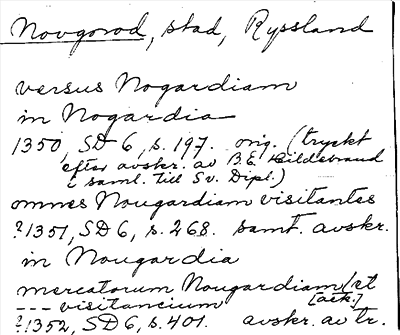 Novgorod, stad, Ryssland
versus Nogardiam
in Nogardia
1350, SD 6, s. 197. orig. (tryckt
efter avskr. av B.E. Hildebrand
i saml. till Sv. Dipl.)
omnes Nougardiam visitantes
?1351, SD 6, s. 268. samt. avskr.
in Nougardia
mercatorum Nougardiam/et
--- visitancium [ack.]
?1352, SD 6, s. 401. avskr. av tr.